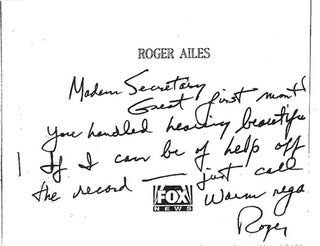 ROGER AILES
Madam Secretary
Great first mont
You handled hearing beautifu
If I can be of help off
the record — just call
FOX
NEWS
Warm rega
Roger